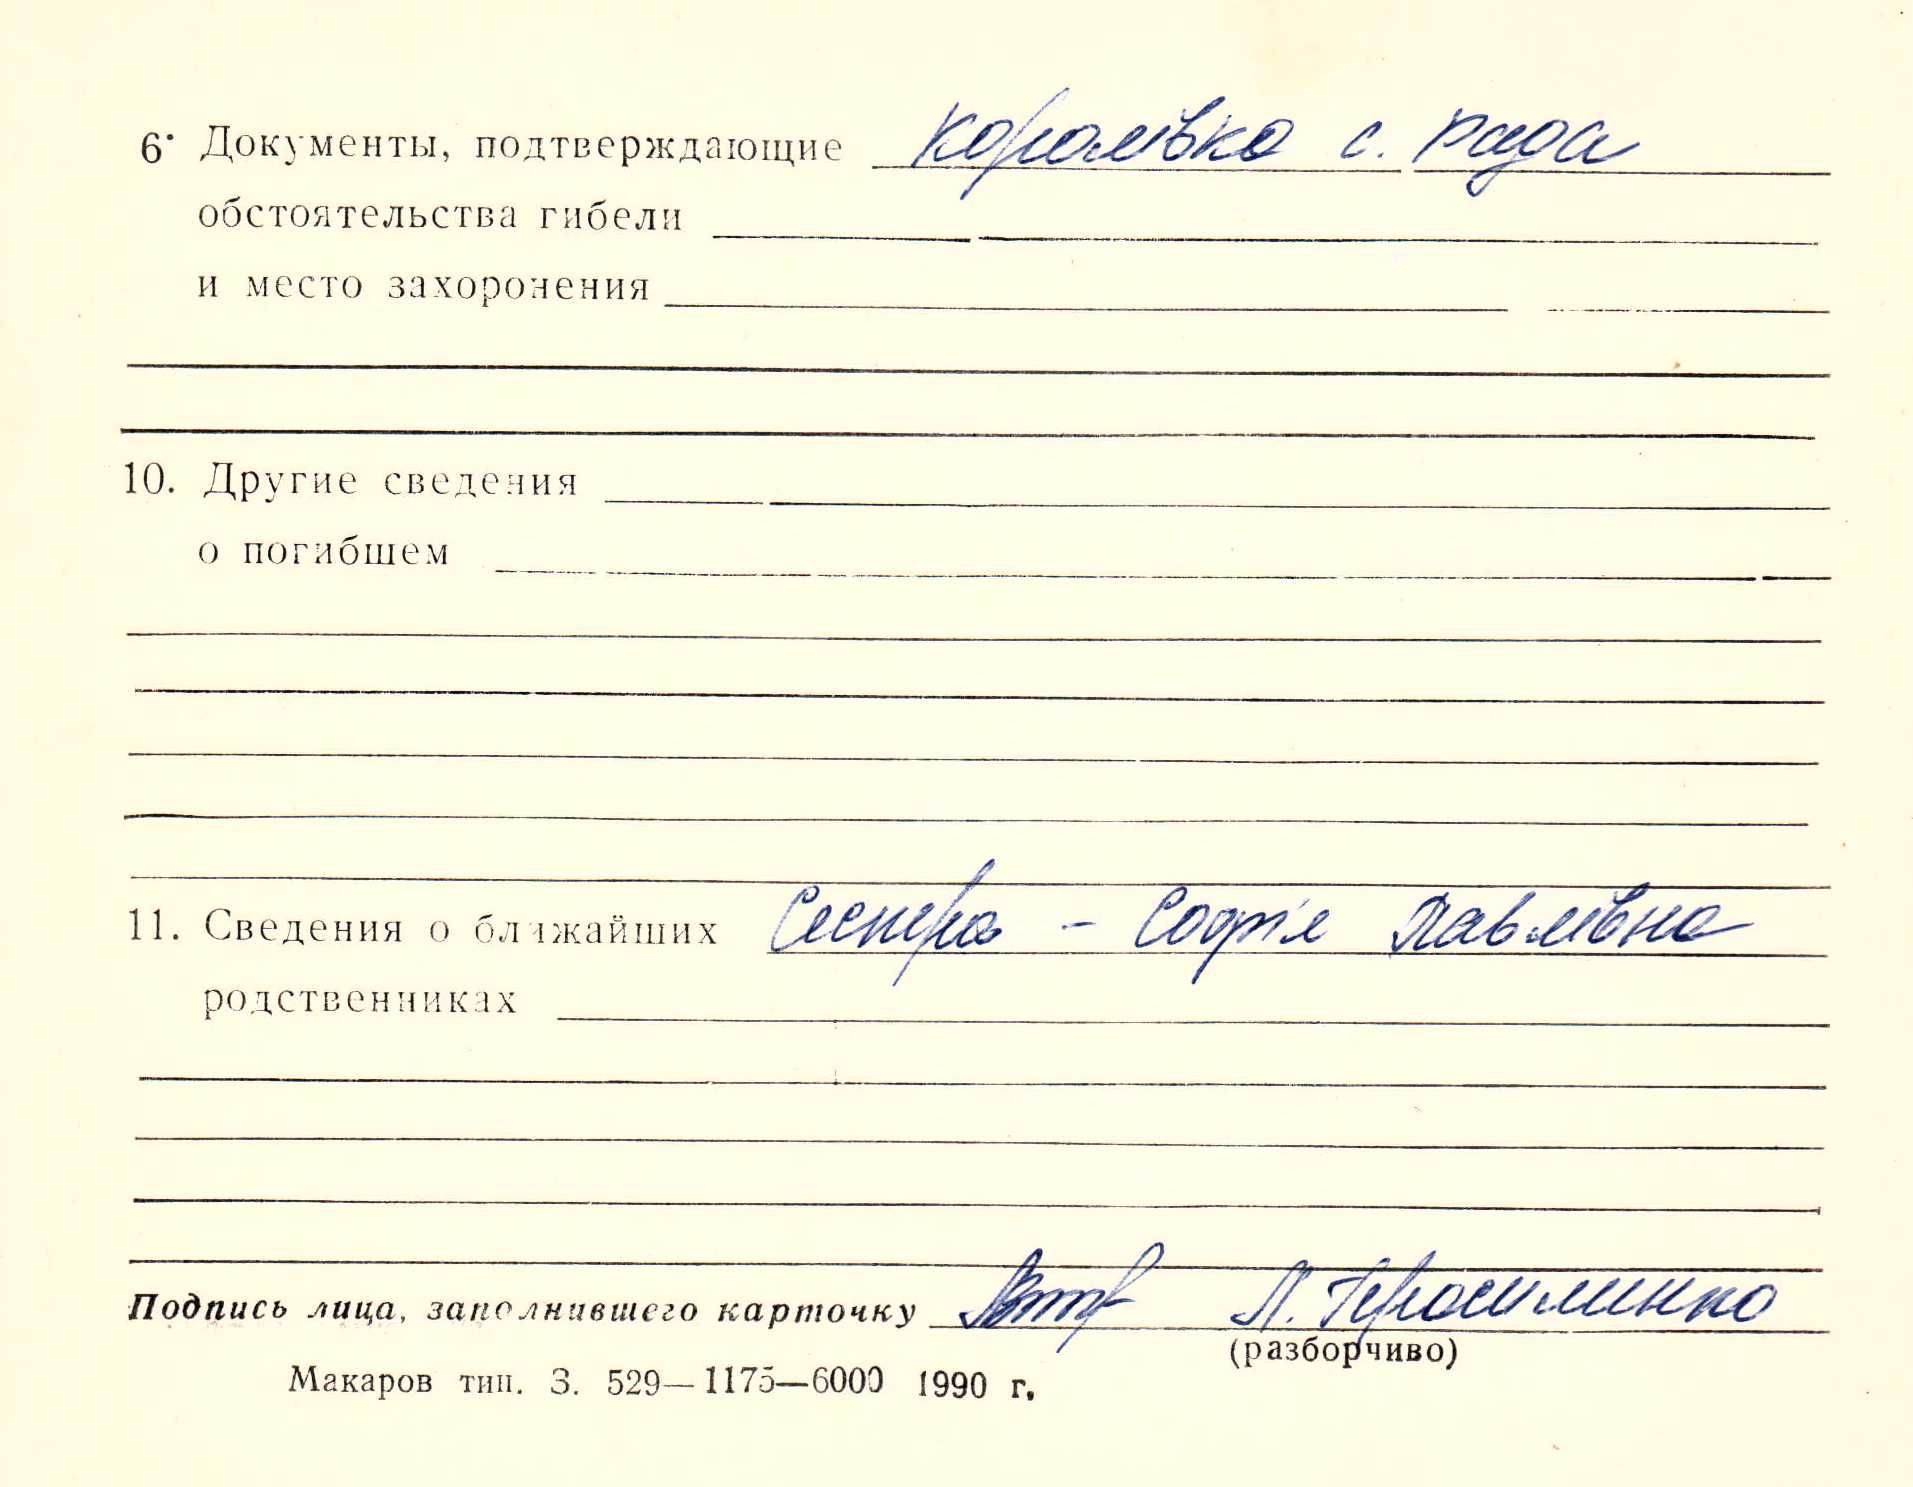 6. Документы, подтверждающие Королівка с. рада
обстоятельства гибели
и место захоронения
10. Другие сведения
о погибшем
11. Сведения о ближайших Сестра - Софія Павлівна
родственниках
Подпись лица, заполнившего карточку Л. Герасименко
(разборчиво)
Макаров тип. З. 529—1175—6000 1990 г.